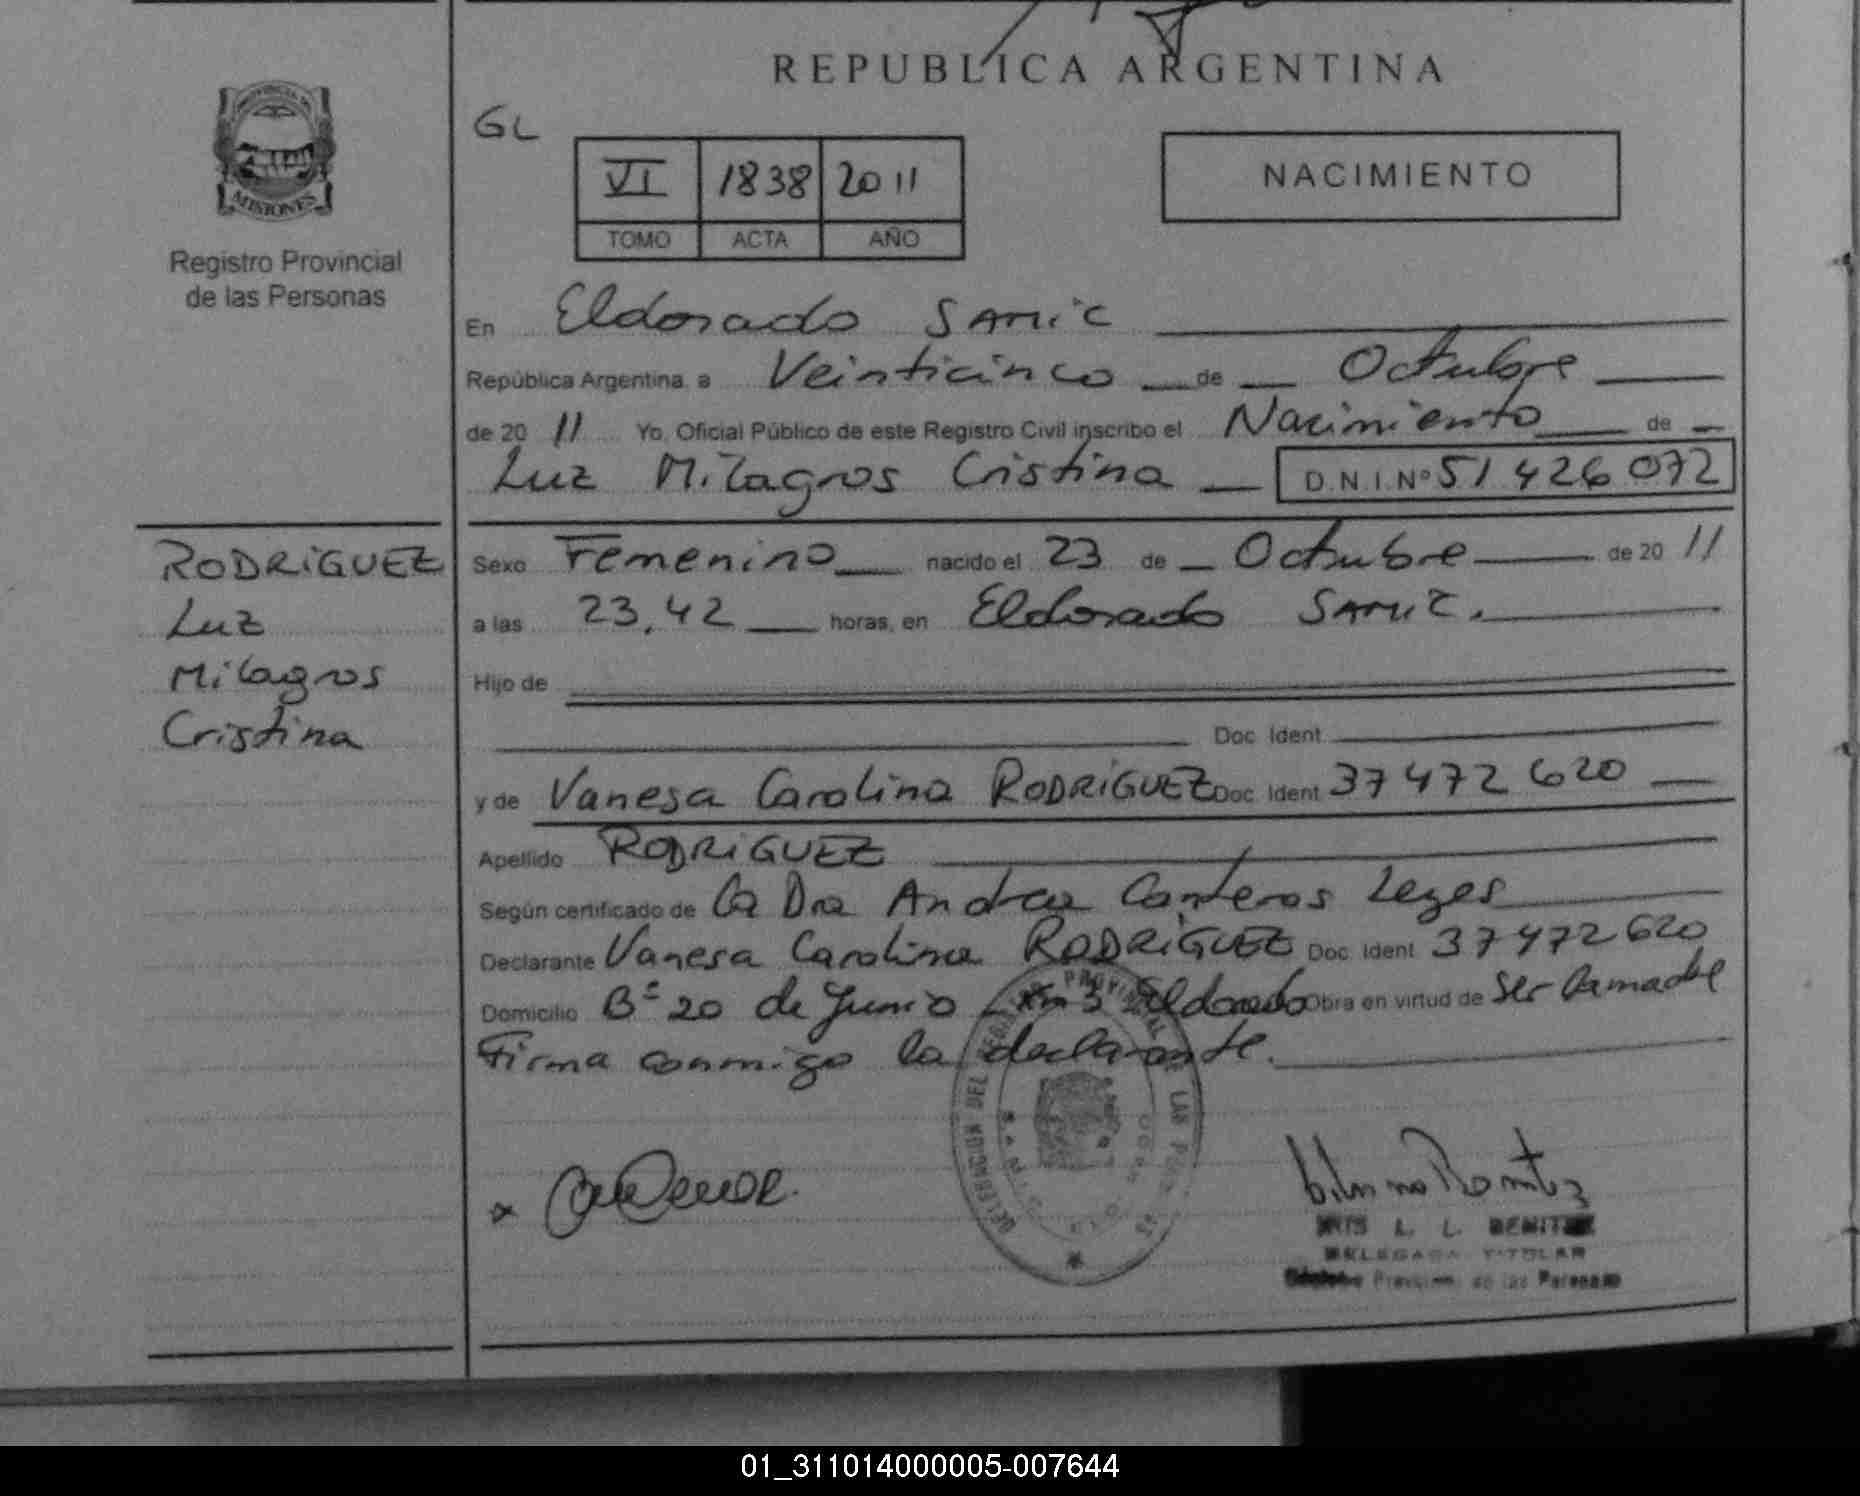 REPUBLICA ARGENTINA
GL
VI 1838 2011
TOMO ACTA AÑO
NACIMIENTO
PROVINCIA DE
MISIONES
Registro Provincial
de las Personas
En Eldorado SAMIC
República Argentina, a Veinticinco de Octubre
de 20 11 Yo, Oficial Público de este Registro Civil inscribo el Nacimiento de
Luz Milagros Cristina D.N.I.Nº 51 426 072
RODRIGUEZ
Luz
Milagros
Cristina
Sexo Femenino nacido el 23 de Octubre de 20 11
a las 23,42 horas, en Eldorado SAMIC.
Hijo de
Doc Ident
y de Vanesa Carolina RODRIGUEZ Doc Ident 37 472 620
Apellido RODRIGUEZ
Según certificado de la Dra Andrea Canteros Leyes
Declarante Vanesa Carolina RODRIGUEZ Doc Ident 37 472 620
Domicilio Bº 20 de Junio Km 3 Eldorado Obra en virtud de ser la madre
Firma conmigo la declarante.
DEL REGISTRO PROVINCIAL DE LAS
L. L. BENITEZ
DELEGADA TITULAR
Registro Provincial de las Personas
01_311014000005-007644